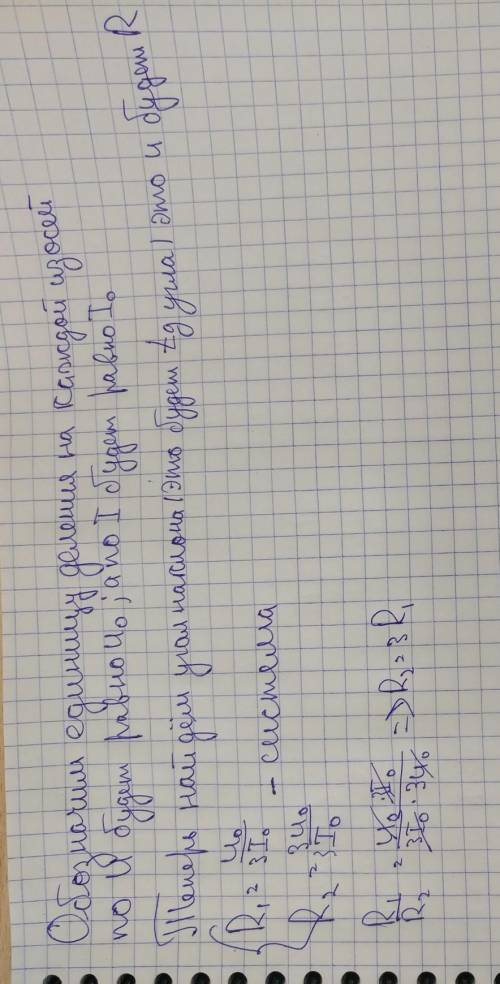 Обозначим единицу деления на каждой из осей
по U будет равно U₀, а по I будет равно I₀
Теперь найдём угол наклона (это будет tg угла) это и будет R
{ R₁ = U₀/3I₀
R₂ = 3U₀/3I₀ - система
R₁/R₂ = U₀·3I₀/3I₀·3U₀ => R₂ = 3R₁